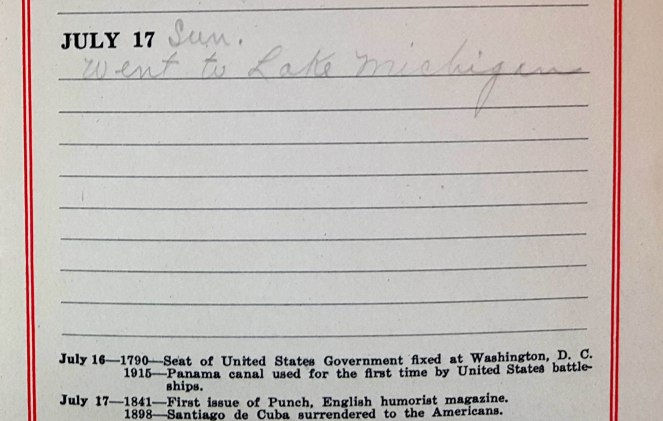 JULY 17 Sun.
Went to Lake Michigan
July 16—1790—Seat of United States Government fixed at Washington, D. C.
1915—Panama canal used for the first time by United States battle-
ships.
July 17—1841—First issue of Punch, English humorist magazine.
1898—Santiago de Cuba surrendered to the Americans.